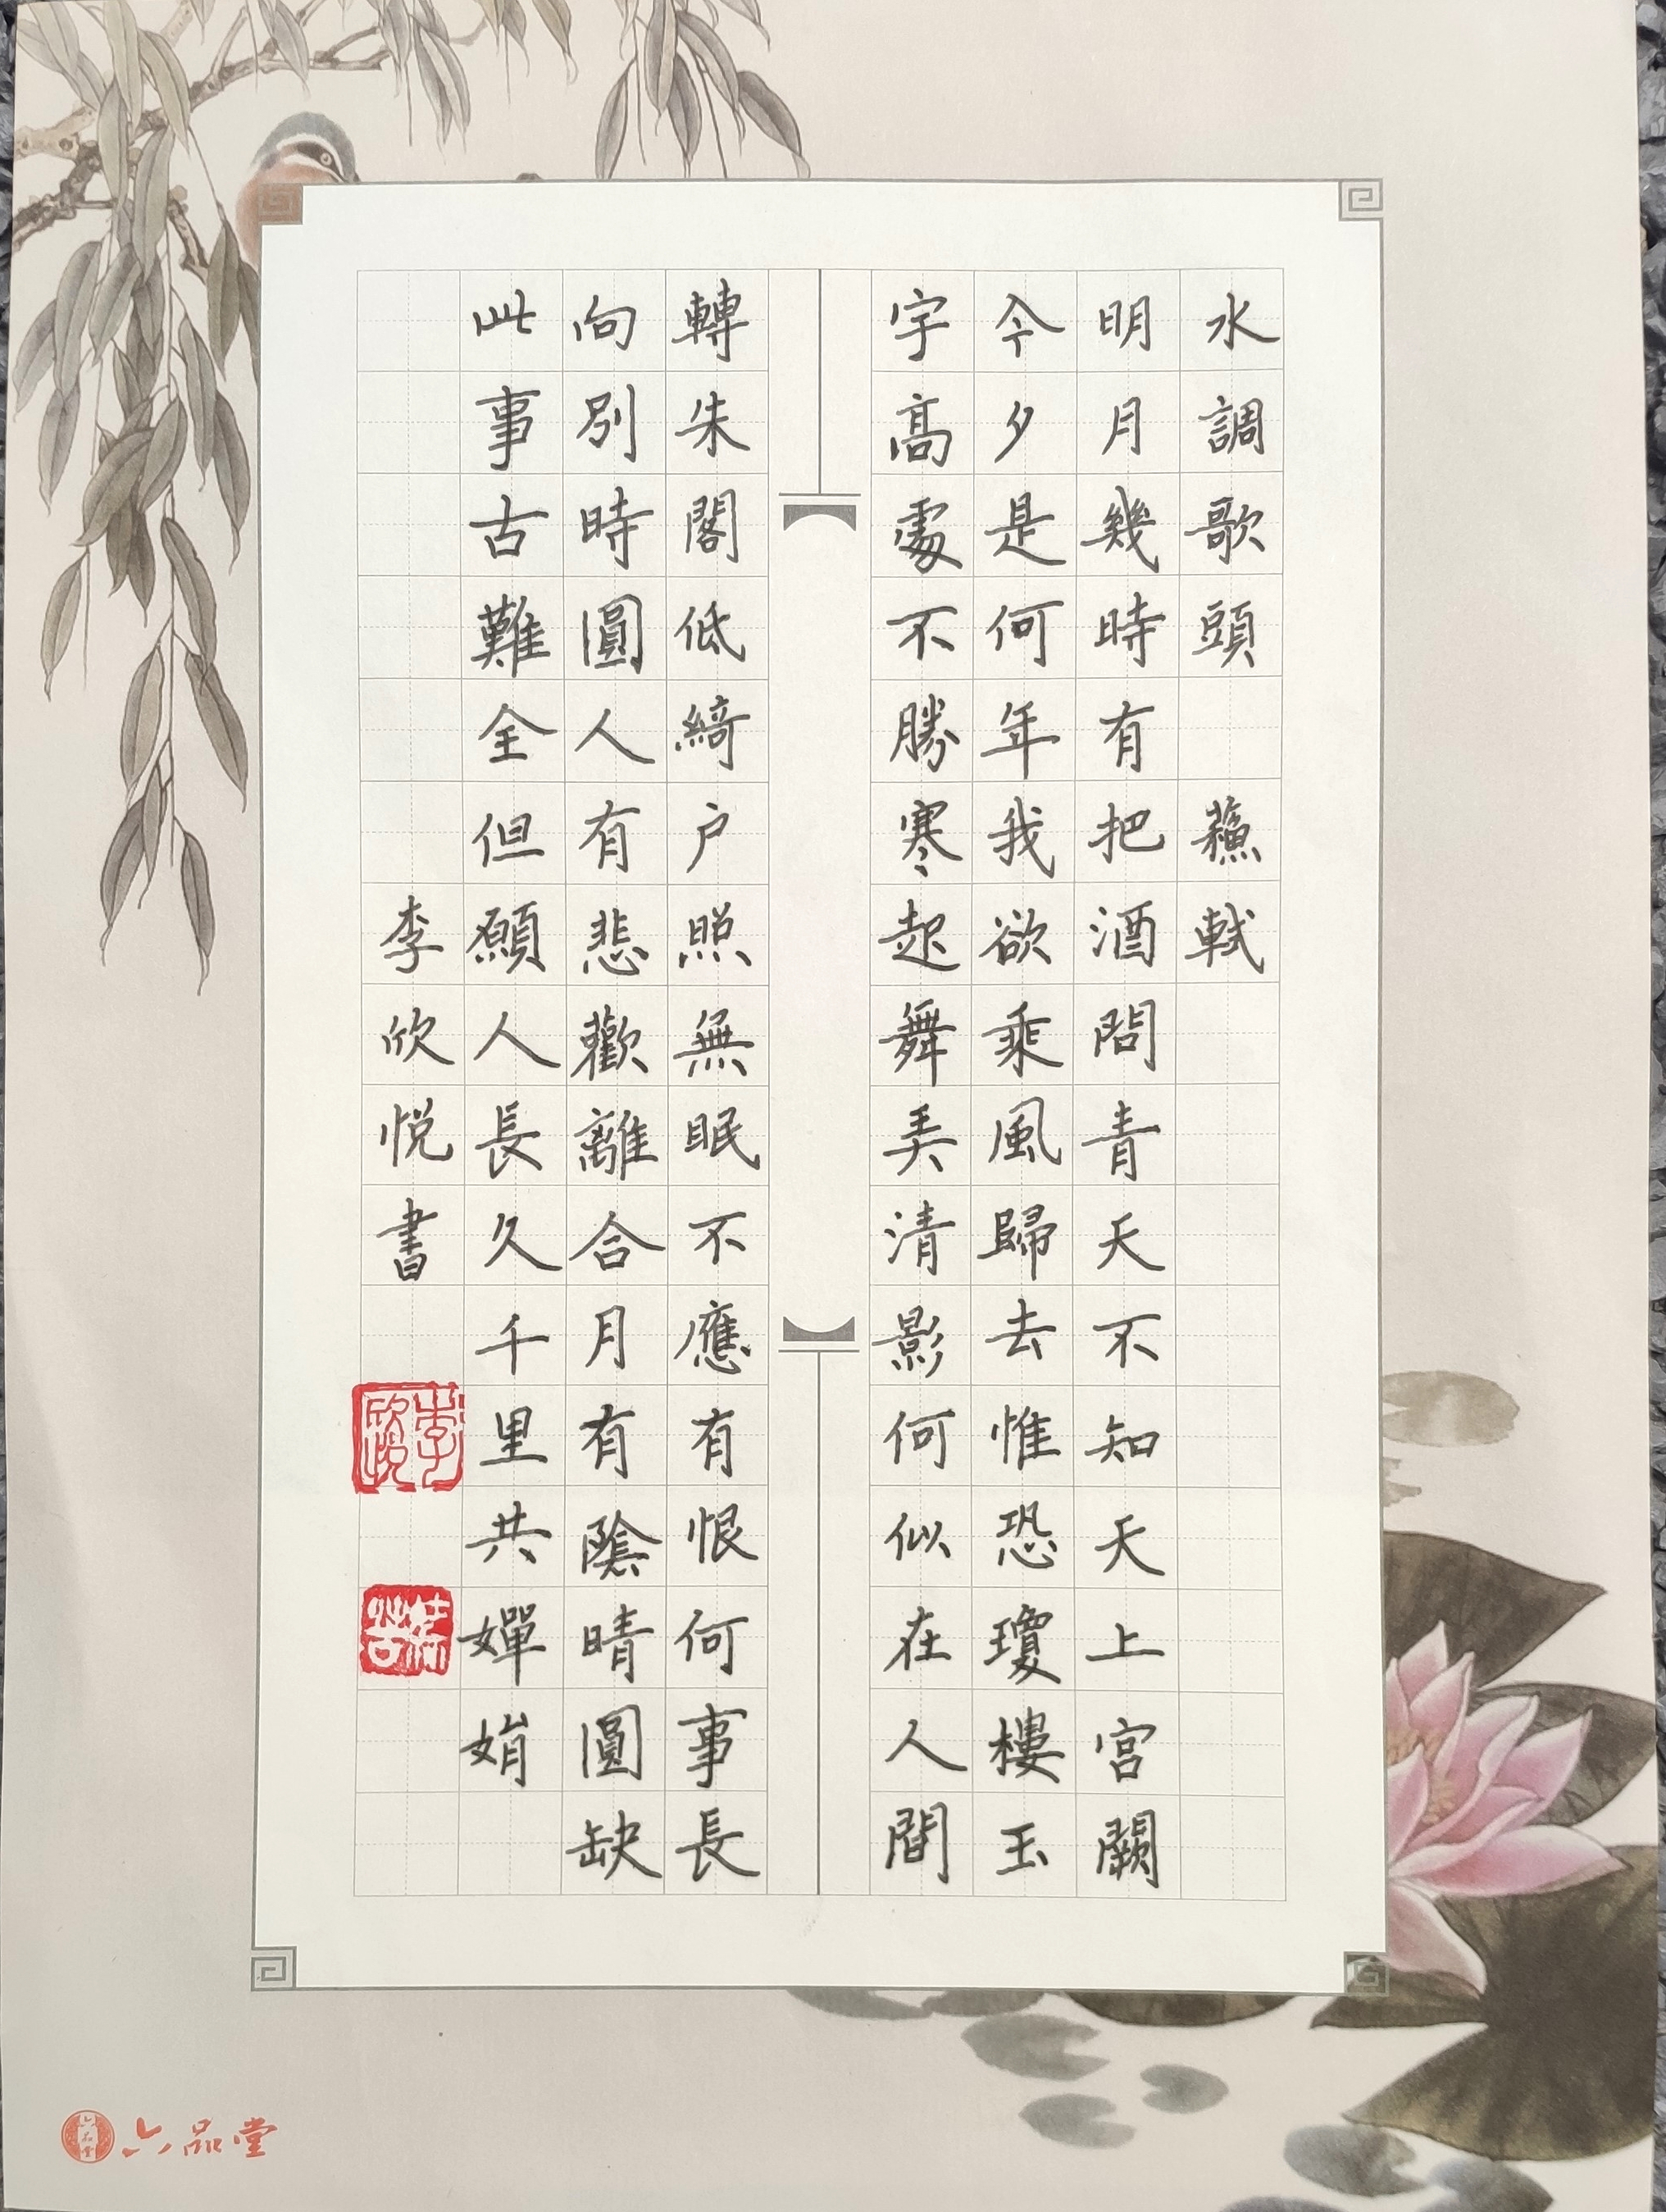 水調歌頭 蘓軾
明月幾時有把酒問青天不知天上宮闕
今夕是何年我欲乘風歸去惟恐瓊樓玉
宇髙處不勝寒起舞弄清影何似在人間
轉朱閣低綺户照無眠不應有恨何事長
向別時圓人有悲歡離合月有陰晴圓缺
此事古難全但願人長久千里共嬋娟
李欣悦書
李欣悦
六品堂